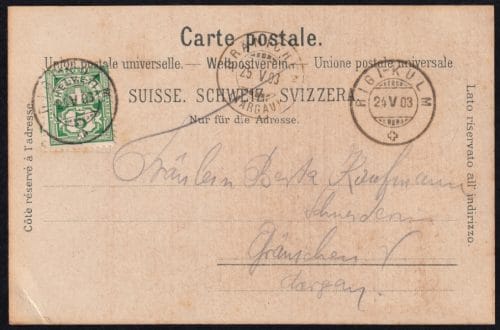 Carte postale.
Union postale universelle. — Weltpostverein. — Unione postale universale
SUISSE. SCHWEIZ. SVIZZERA.
Nur für die Adresse.
Côté réservé à l'adresse.
Lato riservato all' indirizzo.
25 V 03
RIGI-KULM
24 V 03
5
Fräulein Berta Kaufmann
Gränichen
Aargau